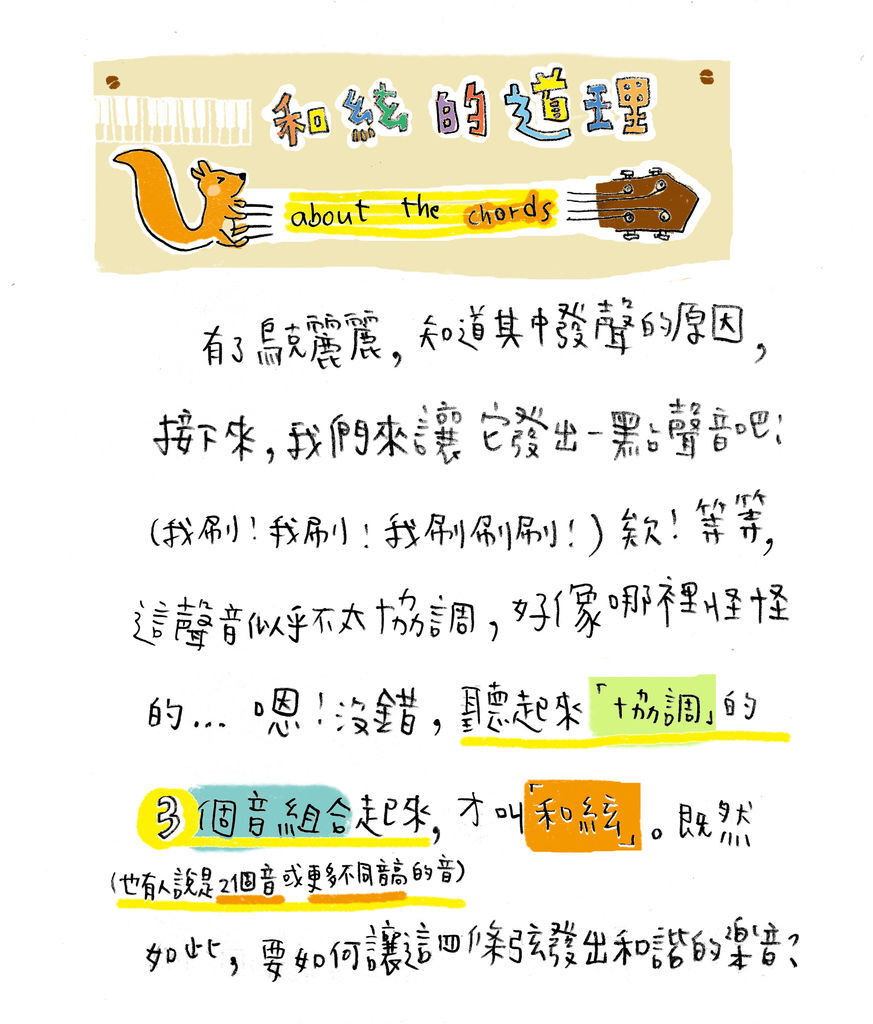 和絃的道理
about the chords
有了烏克麗麗，知道其中發聲的原因，
接下來，我們來讓它發出一點聲音吧！
（我刷！我刷！我刷刷刷！）欸！等等，
這聲音似乎不太協調，好像哪裡怪怪
的... 嗯！沒錯，聽起來「協調」的
3個音組合起來，才叫「和絃」。既然
（也有人說是2個音或更多不同音高的音）
如此，要如何讓這四條弦發出和諧的樂音？